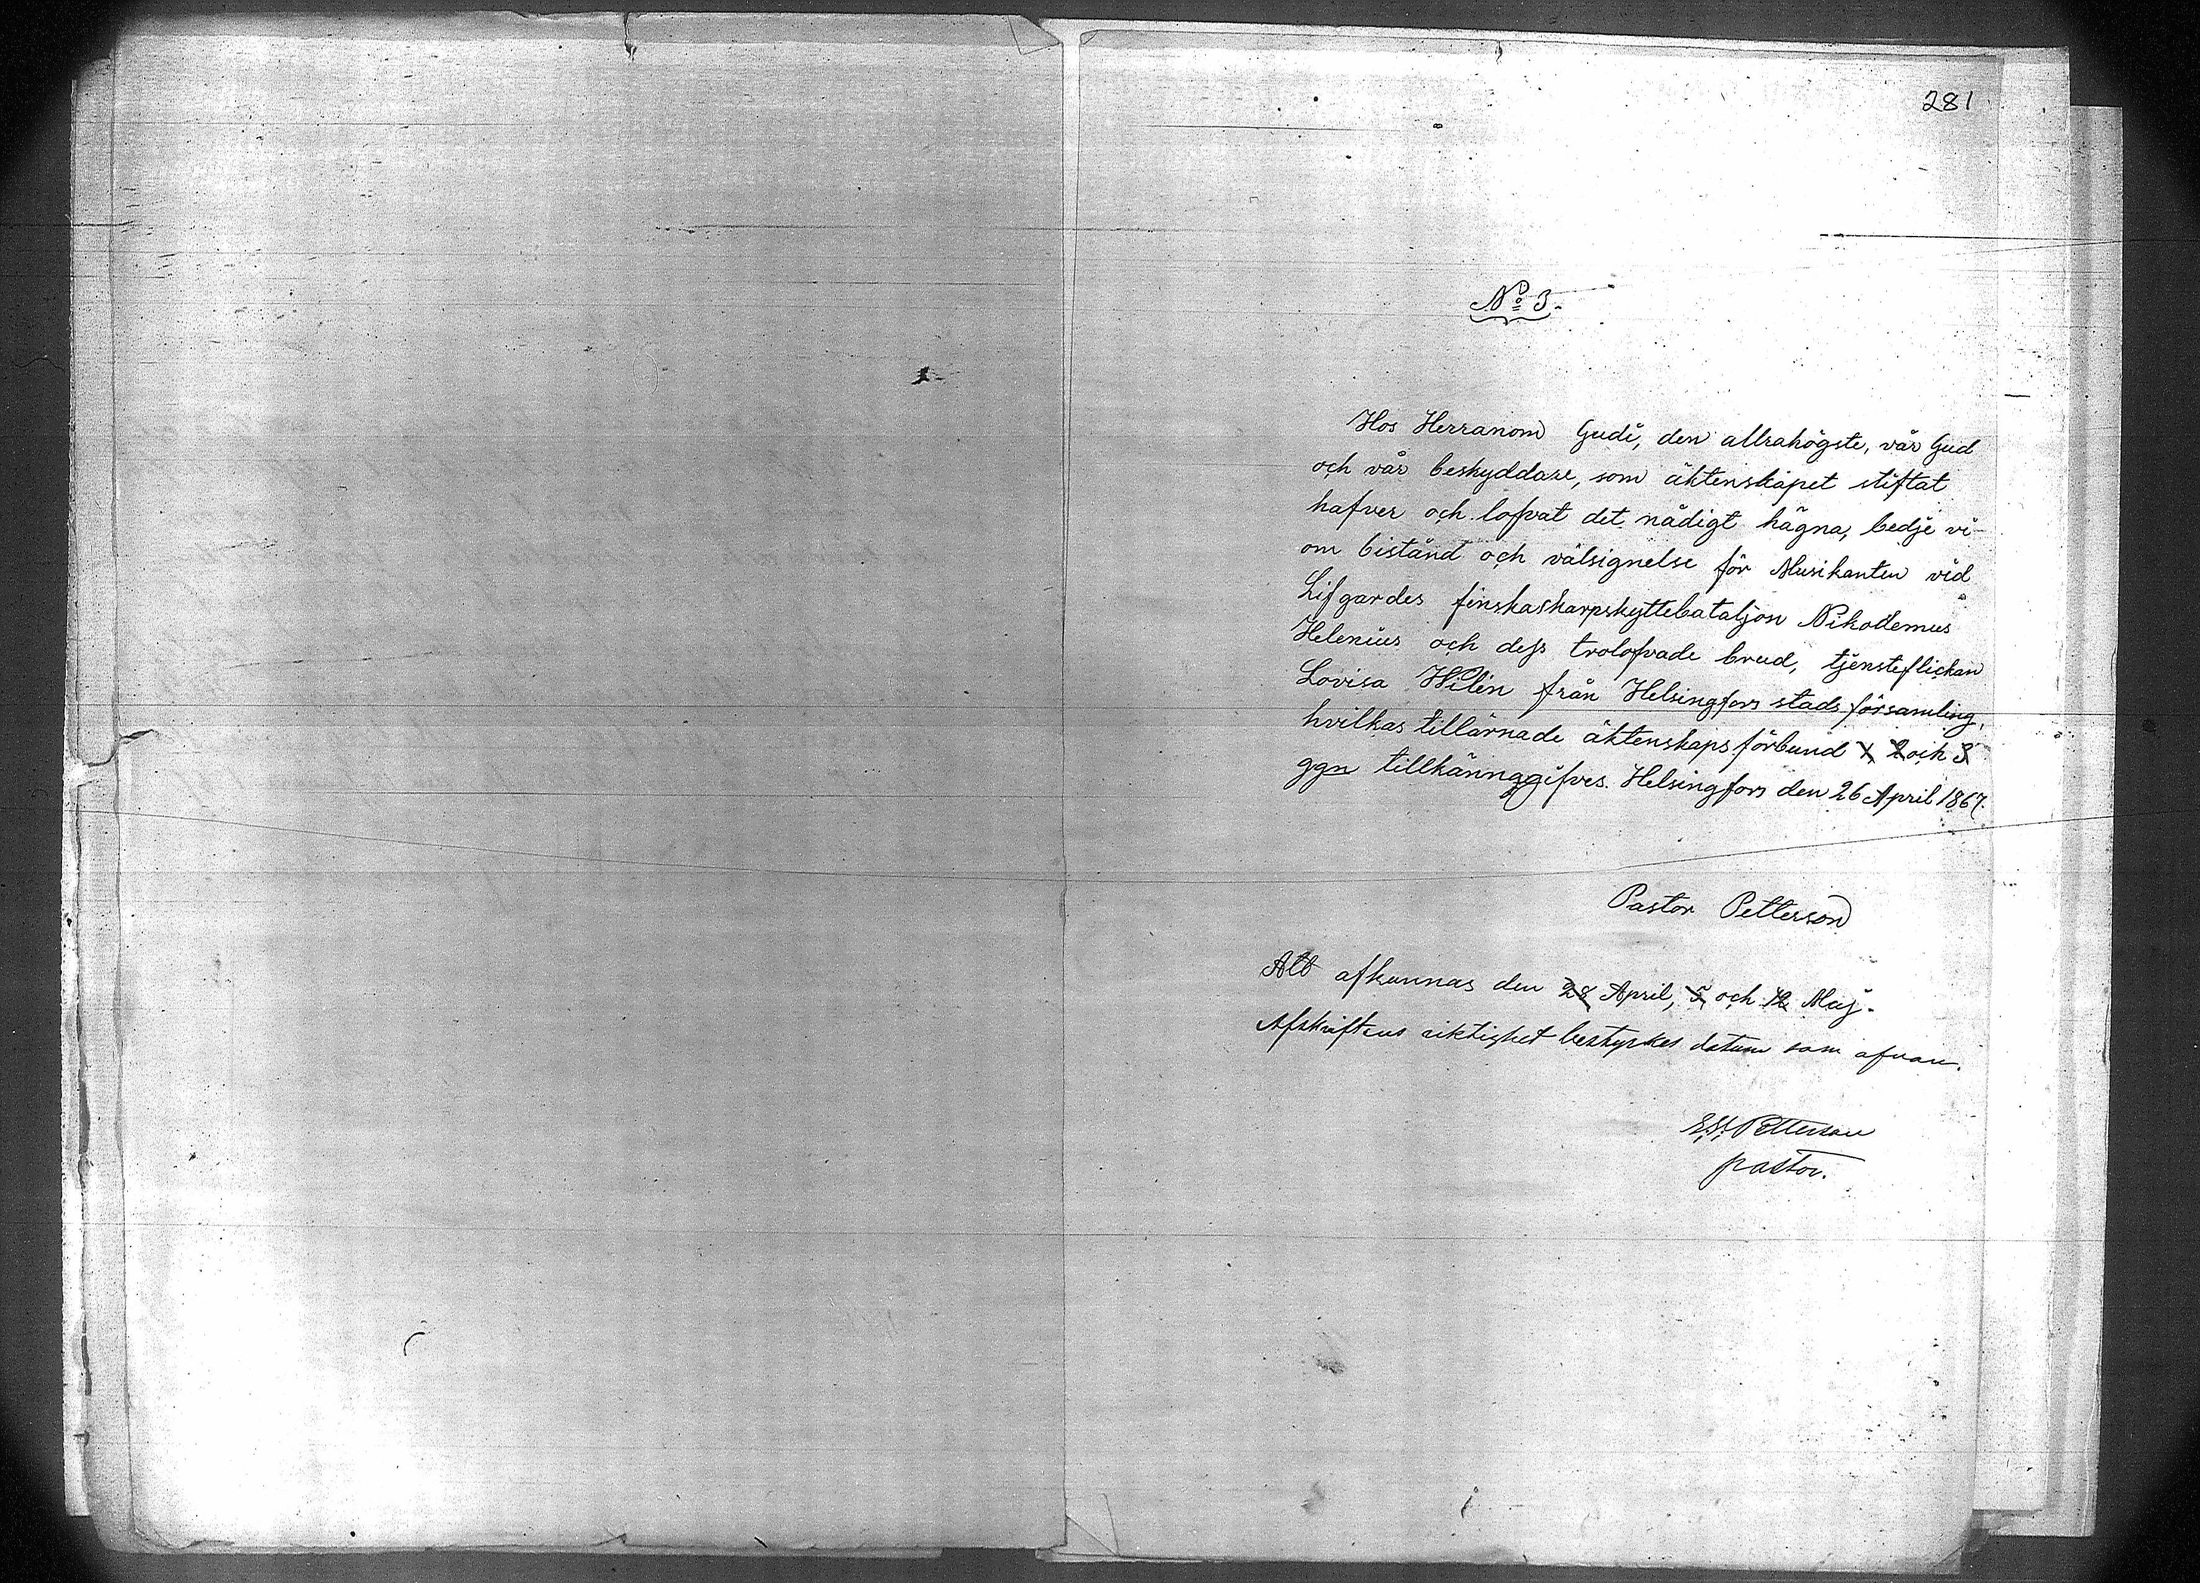 281
No 3.
Hos Herranom Gudi, den allrahögste, vår Gud
och vår beskyddare, som äktenskapet stiftat
hafver och lofvat det nådigt hägna, bedje vi
om bistånd och välsignelse för Musikanten vid
Lifgardes finska skarpskyttebataljon Nikodemus
Helenius och dess trolofvade brud, tjensteflickan
Lovisa Wilén från Helsingfors stads församling,
hvilkas tillärnade äktenskaps förbund 1, 2 och 3
ggn tillkännagifves. Helsingfors den 26 April 1867.
Pastor Petterson
Att afkunnas den 28 April, 5 och 12 Maj.
Afskriftens riktighet bestyrkes datum som ofvan.
Petterson
pastor.